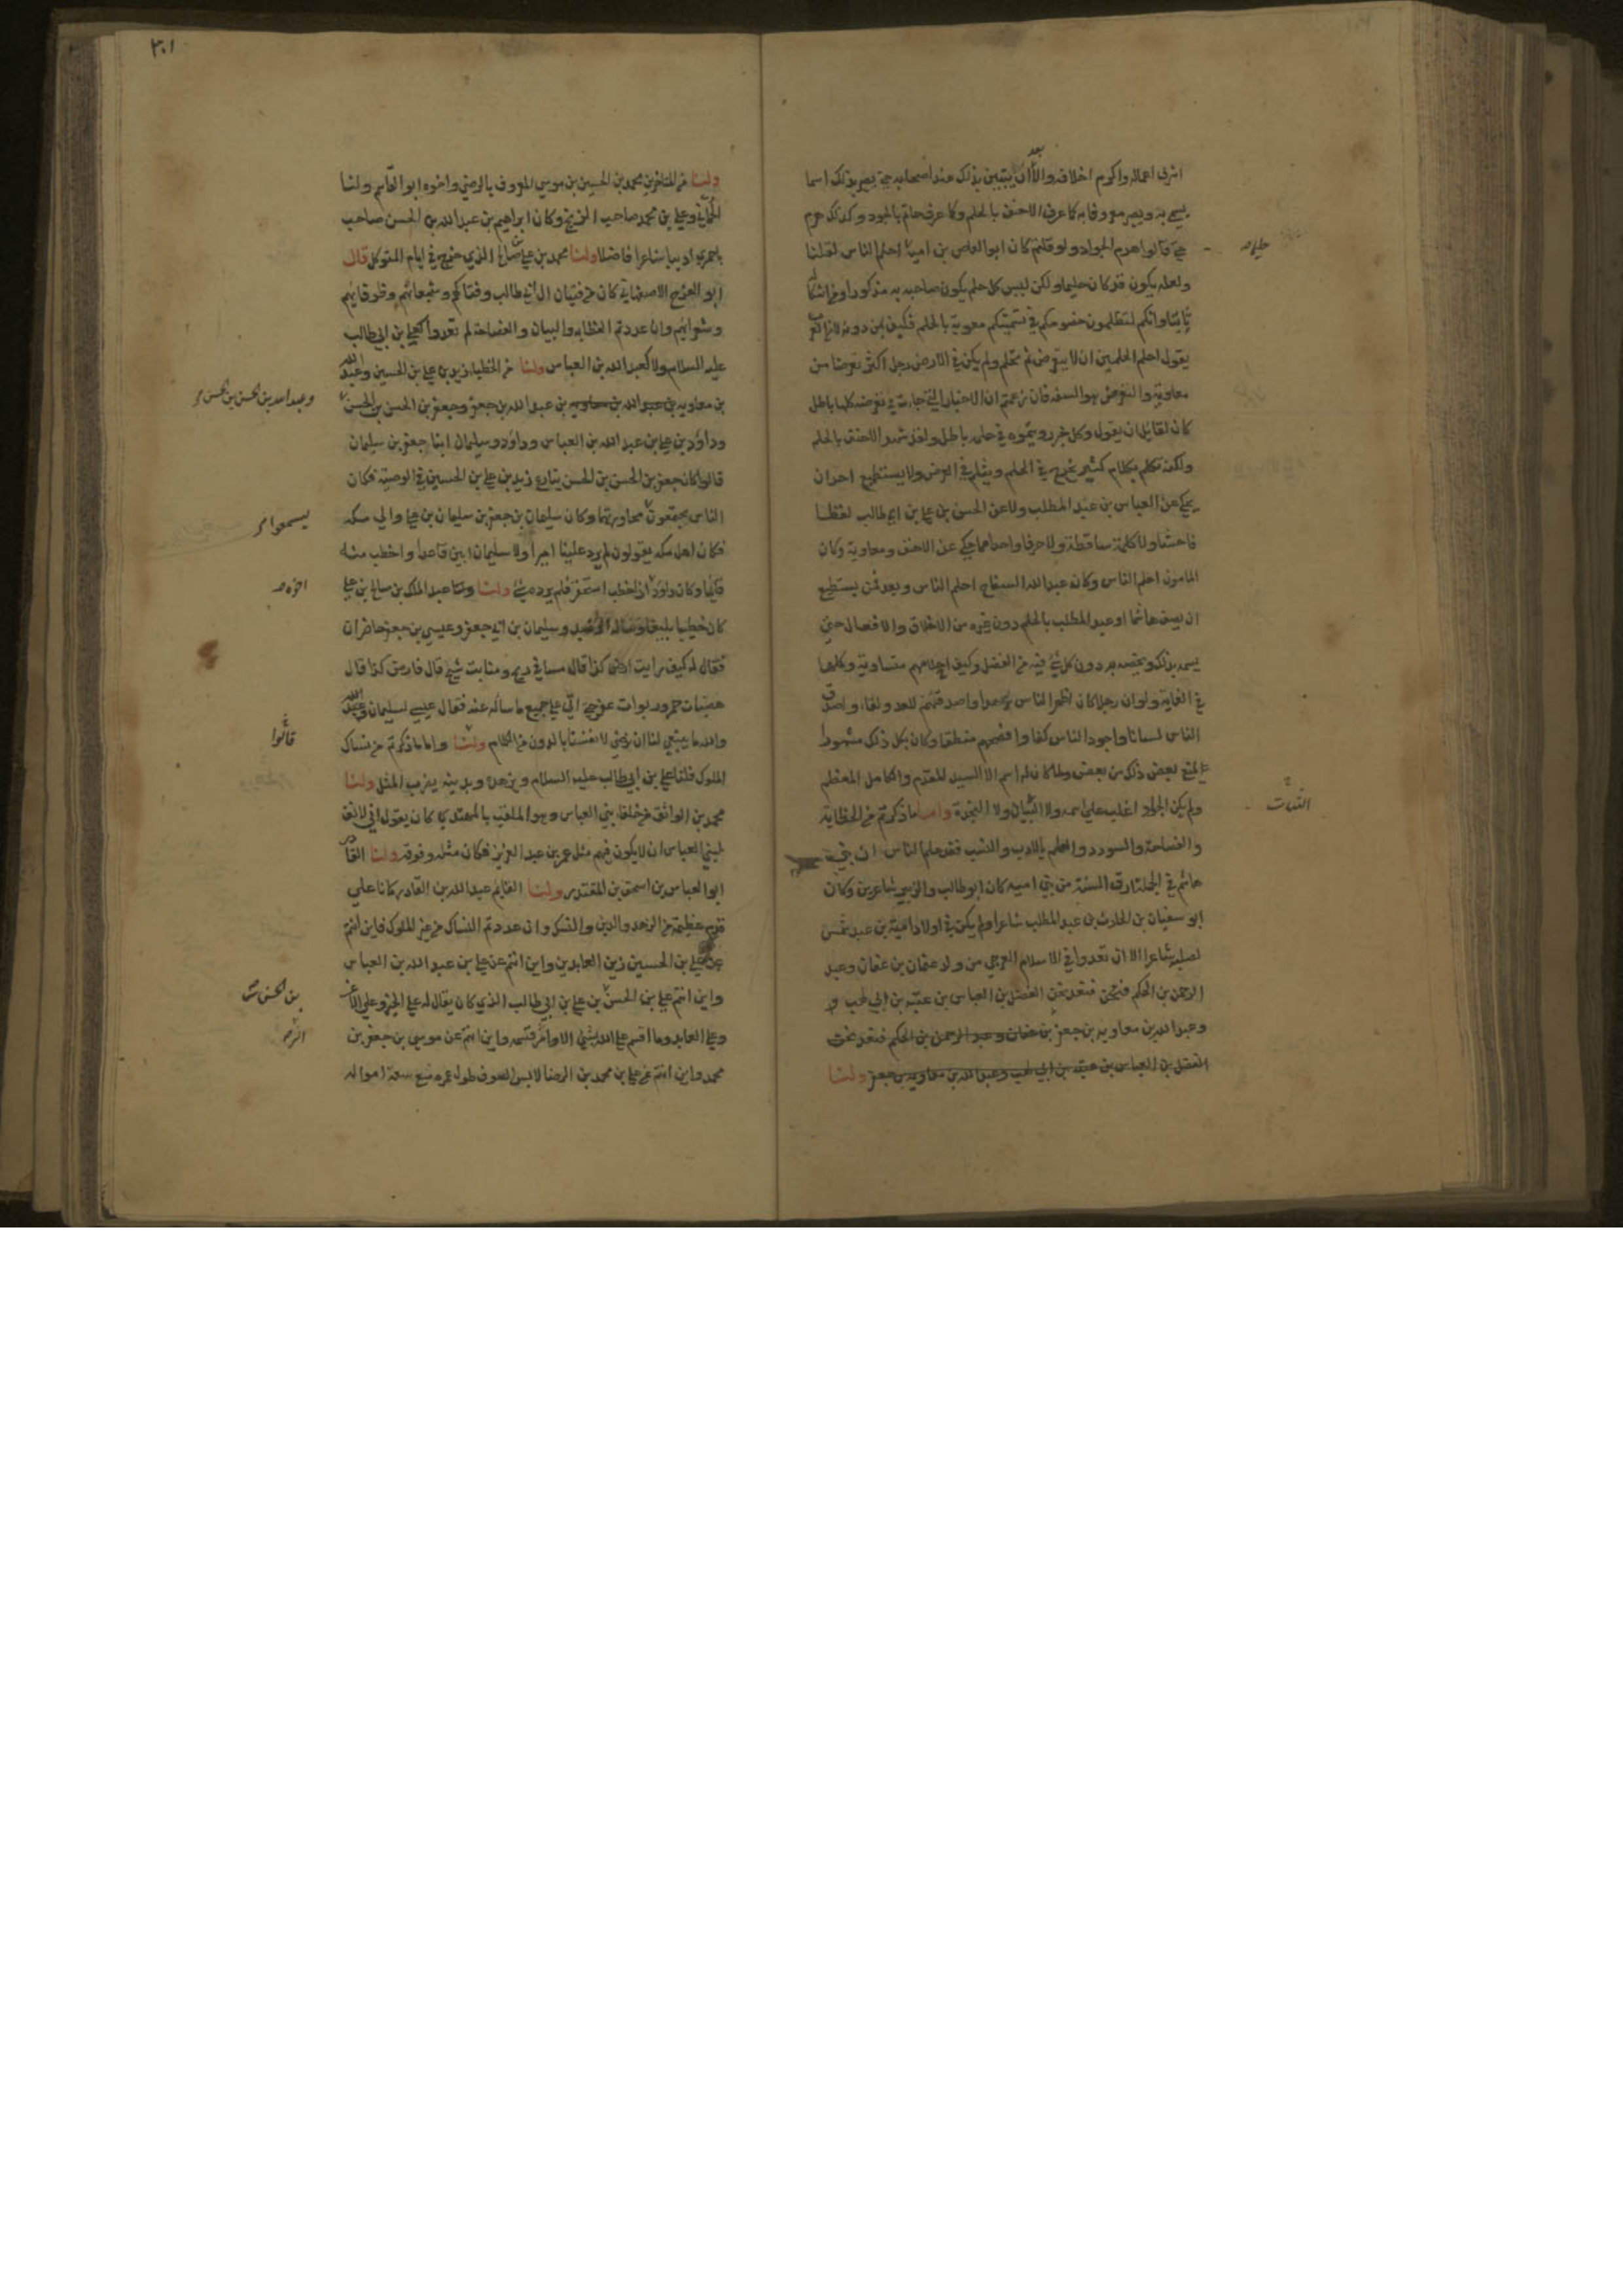 اشرف اعماله واكرم اخلاقه والا ان يتبين بذلك عند اصحابه حتى يصير بذلك اسما
يسمى به ويصير معروفا به كما عرف الاحنف بالحلم وكما عرف حاتم بالجود وكذلك هرم
حتى قالوا هرم الجواد ولو قلتم كان ابو العاص بن امية احلم الناس لقلنا
ولعله يكون قد كان حليما ولكن ليس كل حلم يكون صاحبه به مذكورا
وانكم لتظلمون خصومكم في تسميتكم معوية بالحلم فكيف من دونه
يقول احلم الحلمين ان لا يتعرض ثم يحلم ولم يكن في الارض رجل اكثر تعرضا من
معاوية والتعرض هو السفه فان زعمتم ان الاخبار التي جاءت في تعرضه كلها باطل
كان لقايل ان يقول وكل خبر رويتموه في حلمه باطل ولقد شهر الاحنف بالحلم
ولكنه تكلم بكلام كثير يجرح في الحلم ويثلم في العرض ولا يستطيع احد ان
يحكي عن العباس بن عبد المطلب ولا عن الحسن بن علي بن ابي طالب لفظا
فاحشا ولا كلمة ساقطة ولا حرفا واحدا مما يحكى عن الاحنف ومعاوية وكان
المامون احلم الناس وكان عبد الله السفاح احلم الناس وبعد فمن يستطيع
ان يصف هاشما او عبد المطلب بالحلم دون غيره من الاخلاق والافعال حتى
يسمه بذلك ويخصه به دون كل شيء فيه من الفضل وكيف اخلاقهم متساوية وكلها
في الغاية ولو ان رجلا كان اظهر الناس زهدا واصدقهم للعدو لقاء واصدق
الناس لسانا واجود الناس كفا وافصحهم منطقا وكان بكل ذلك مشهورا
لمنع بعض ذلك من بعض ولما كان له اسم الا السيد المقدم والكامل المعظم
ولم يكن الجواد اغلب على اسمه ولا البيان ولا النجدة واما ما ذكرتم من الخطابة
والفصاحة والسودد والعلم بالادب والنسب فقد علم الناس ان بني
هاشم في الجملة ارق السنة من بني امية كان ابو طالب والزبير شاعرين وكان
ابو سفيان بن الحارث بن عبد المطلب شاعرا ولم يكن في اولاد امية بن عبد شمس
لصلبه شاعر الا ان تعدوا في الاسلام العرجي من ولد عثمان بن عفان وعبد
الرحمن بن الحكم فنحن فنعد نحن الفضل بن العباس بن عتبة بن ابي لهب و
وعبد الله بن معاوية بن جعفر بن عفان وعبد الرحمن بن الحكم فنعد نحن
الفضل بن العباس بن عتبة بن ابي لهب وعبد الله بن معاوية بن جعفر ولنا
٣٠١
ولنا من المتاخرين محمد بن الحسين بن موسى المعروف بالرضي واخوه ابو القاسم ولنا
الحماني وعلي بن محمد صاحب الزنج وكان ابراهيم بن عبد الله بن الحسن صاحب
باخمرى اديبا شاعرا فاضلا ولنا محمد بن علي بن صالح الذي خرج في ايام المتوكل قال
ابو الفرج الاصفهاني كان من فتيان ال ابي طالب وفتاكهم وشجعانهم وظرفايهم
وشعرائهم وان عددتم الخطابة والبيان والفصاحة لم تعدوا كعلي بن ابي طالب
عليه السلام ولا كعبد الله بن العباس ولنا من الخطباء زيد بن علي بن الحسين وعبد الله
بن معاويه بن عبد الله بن معاويه بن عبد الله بن جعفر وجعفر بن الحسن بن الحسن
وعبد الله بن الحسن بن الحسن
وداود بن علي بن عبد الله بن العباس وداود وسليمان ابنا جعفر بن سليمان
قالوا كان جعفر بن الحسن بن الحسن ينازع زيد بن علي بن الحسين في الوصية فكان
الناس يجتمعون محاورتهما وكان سليمان بن جعفر بن سليمان بن علي والي مكه
ليسمعوا
فكان اهل مكه يقولون لم يرد علينا امير الا وسليمان ابين قاعدا واخطب منه
قايما وكان داود اذا خطب اسحنفر فلم يرده شيء ولنا عبد الملك بن صالح بن علي
كان خطيبا بليغا وساله الرشيد وسليمان بن ابي جعفر وعيسى بن جعفر حاضران
فقال له كيف رايت ارض كذا قال مسافي ريح ومنابت شيح قال فارض كذا قال
هضبات حمر وربوات عفر حتى اتى على جميع ما ساله عنه فقال عيسى لسليمان
والله ما ينبغي لنا ان نرضى لانفسنا بالدون من الكلام ولنا واما ما ذكرتم من نساك
قالوا
الملوك فلنا علي بن ابي طالب عليه السلام وبزهده وبدينه يضرب المثل ولنا
محمد بن الواثق من خلفاء بني العباس وهو الملقب بالمهتدي كان يقول اني لانف
لبني العباس ان لا يكون فيهم مثل عمر بن عبد العزيز فكان مثله وفوقه ولنا القادر
ابو العباس بن اسحق بن المقتدر ولنا القايم عبد الله بن القادر كانا على
قدم عظيمة من الزهد والدين والنسك وان عددتم النساك من غير الملوك فاين انتم
عن علي بن الحسين زين العابدين واين انتم عن علي بن عبد الله بن العباس
واين انتم علي بن الحسن بن علي بن ابي طالب الذي كان يقال له علي الخير وعلي الاغر
بن الحسن
وعلي العابد وما اقسم على الله بشيء الا وابر قسمه واين انتم عن موسى بن جعفر بن
محمد واين انتم عن علي بن محمد بن الرضا لابس الصوف طول عمره مع سعة امواله